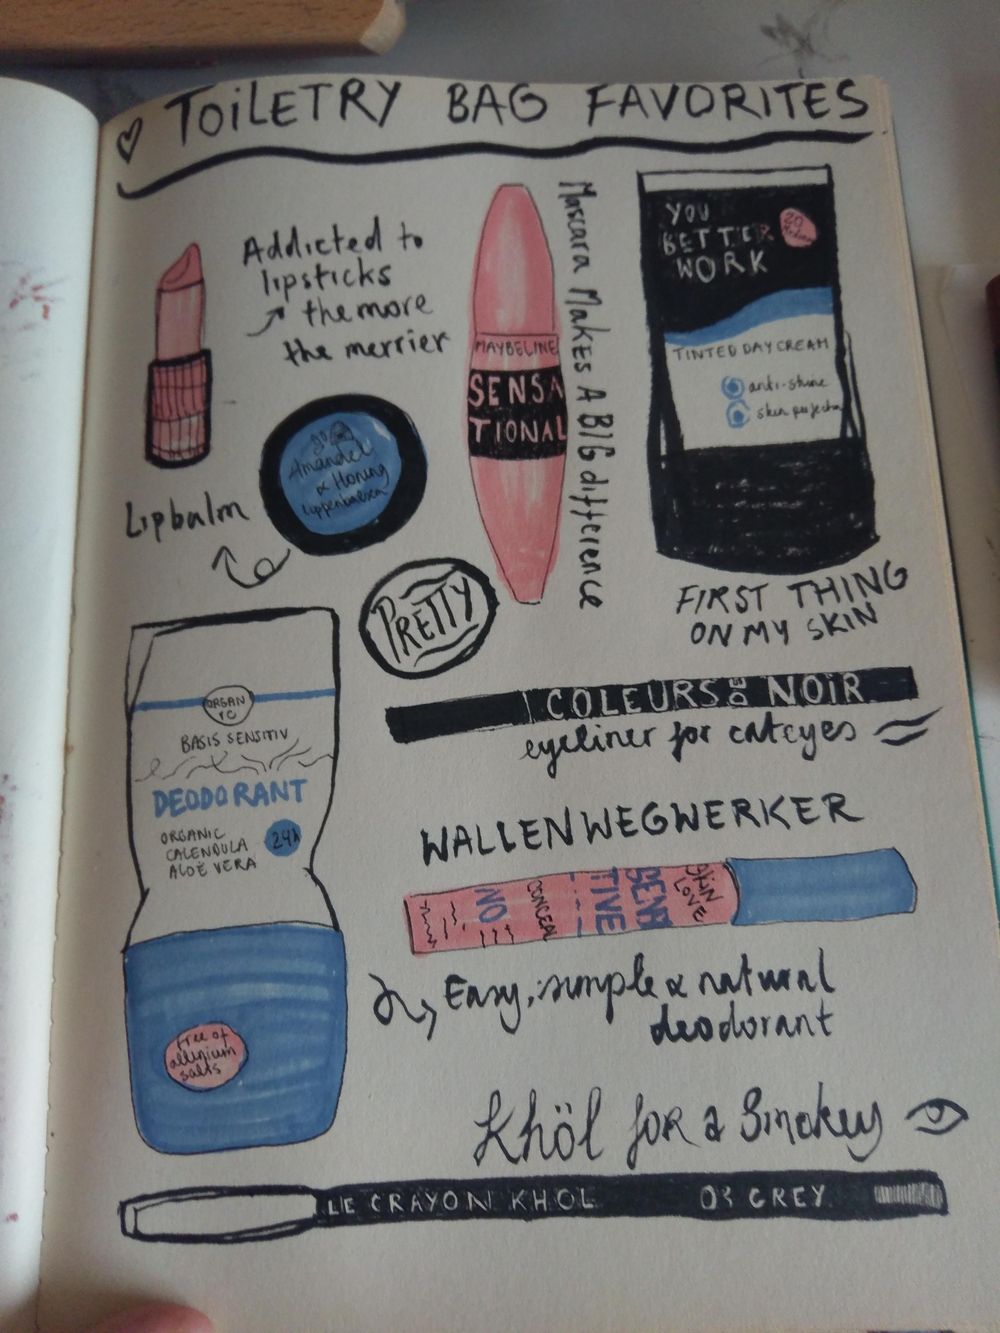 TOiLETRY BAG FAVORITES
Addicted to
lipsticks
the more
the merrier
MAYBELINE
SENSA
TIONAL
Mascara Makes A BIG difference
YOU
BETTER
WORK
20
TINTED DAY CREAM
anti-shine
skin
FIRST THING
ON MY SKIN
Amandel
& Honing
Lippenbalsem
Lipbalm
PRETTY
ORGAN
IC
BASIS SENSITIV
DEODORANT
ORGANIC
CALENDULA
ALOË VERA
24h
Free of
allunium
salts
COLEURS DE NOiR
eyeliner for cateyes
WALLENWEGWERKER
SKIN
LOVE
SENSI
TIVE
CONCEAL
NO
Easy, simple & natural
deodorant
Khöl for a Smokey
LE CRAYON KHOL 03 GREY